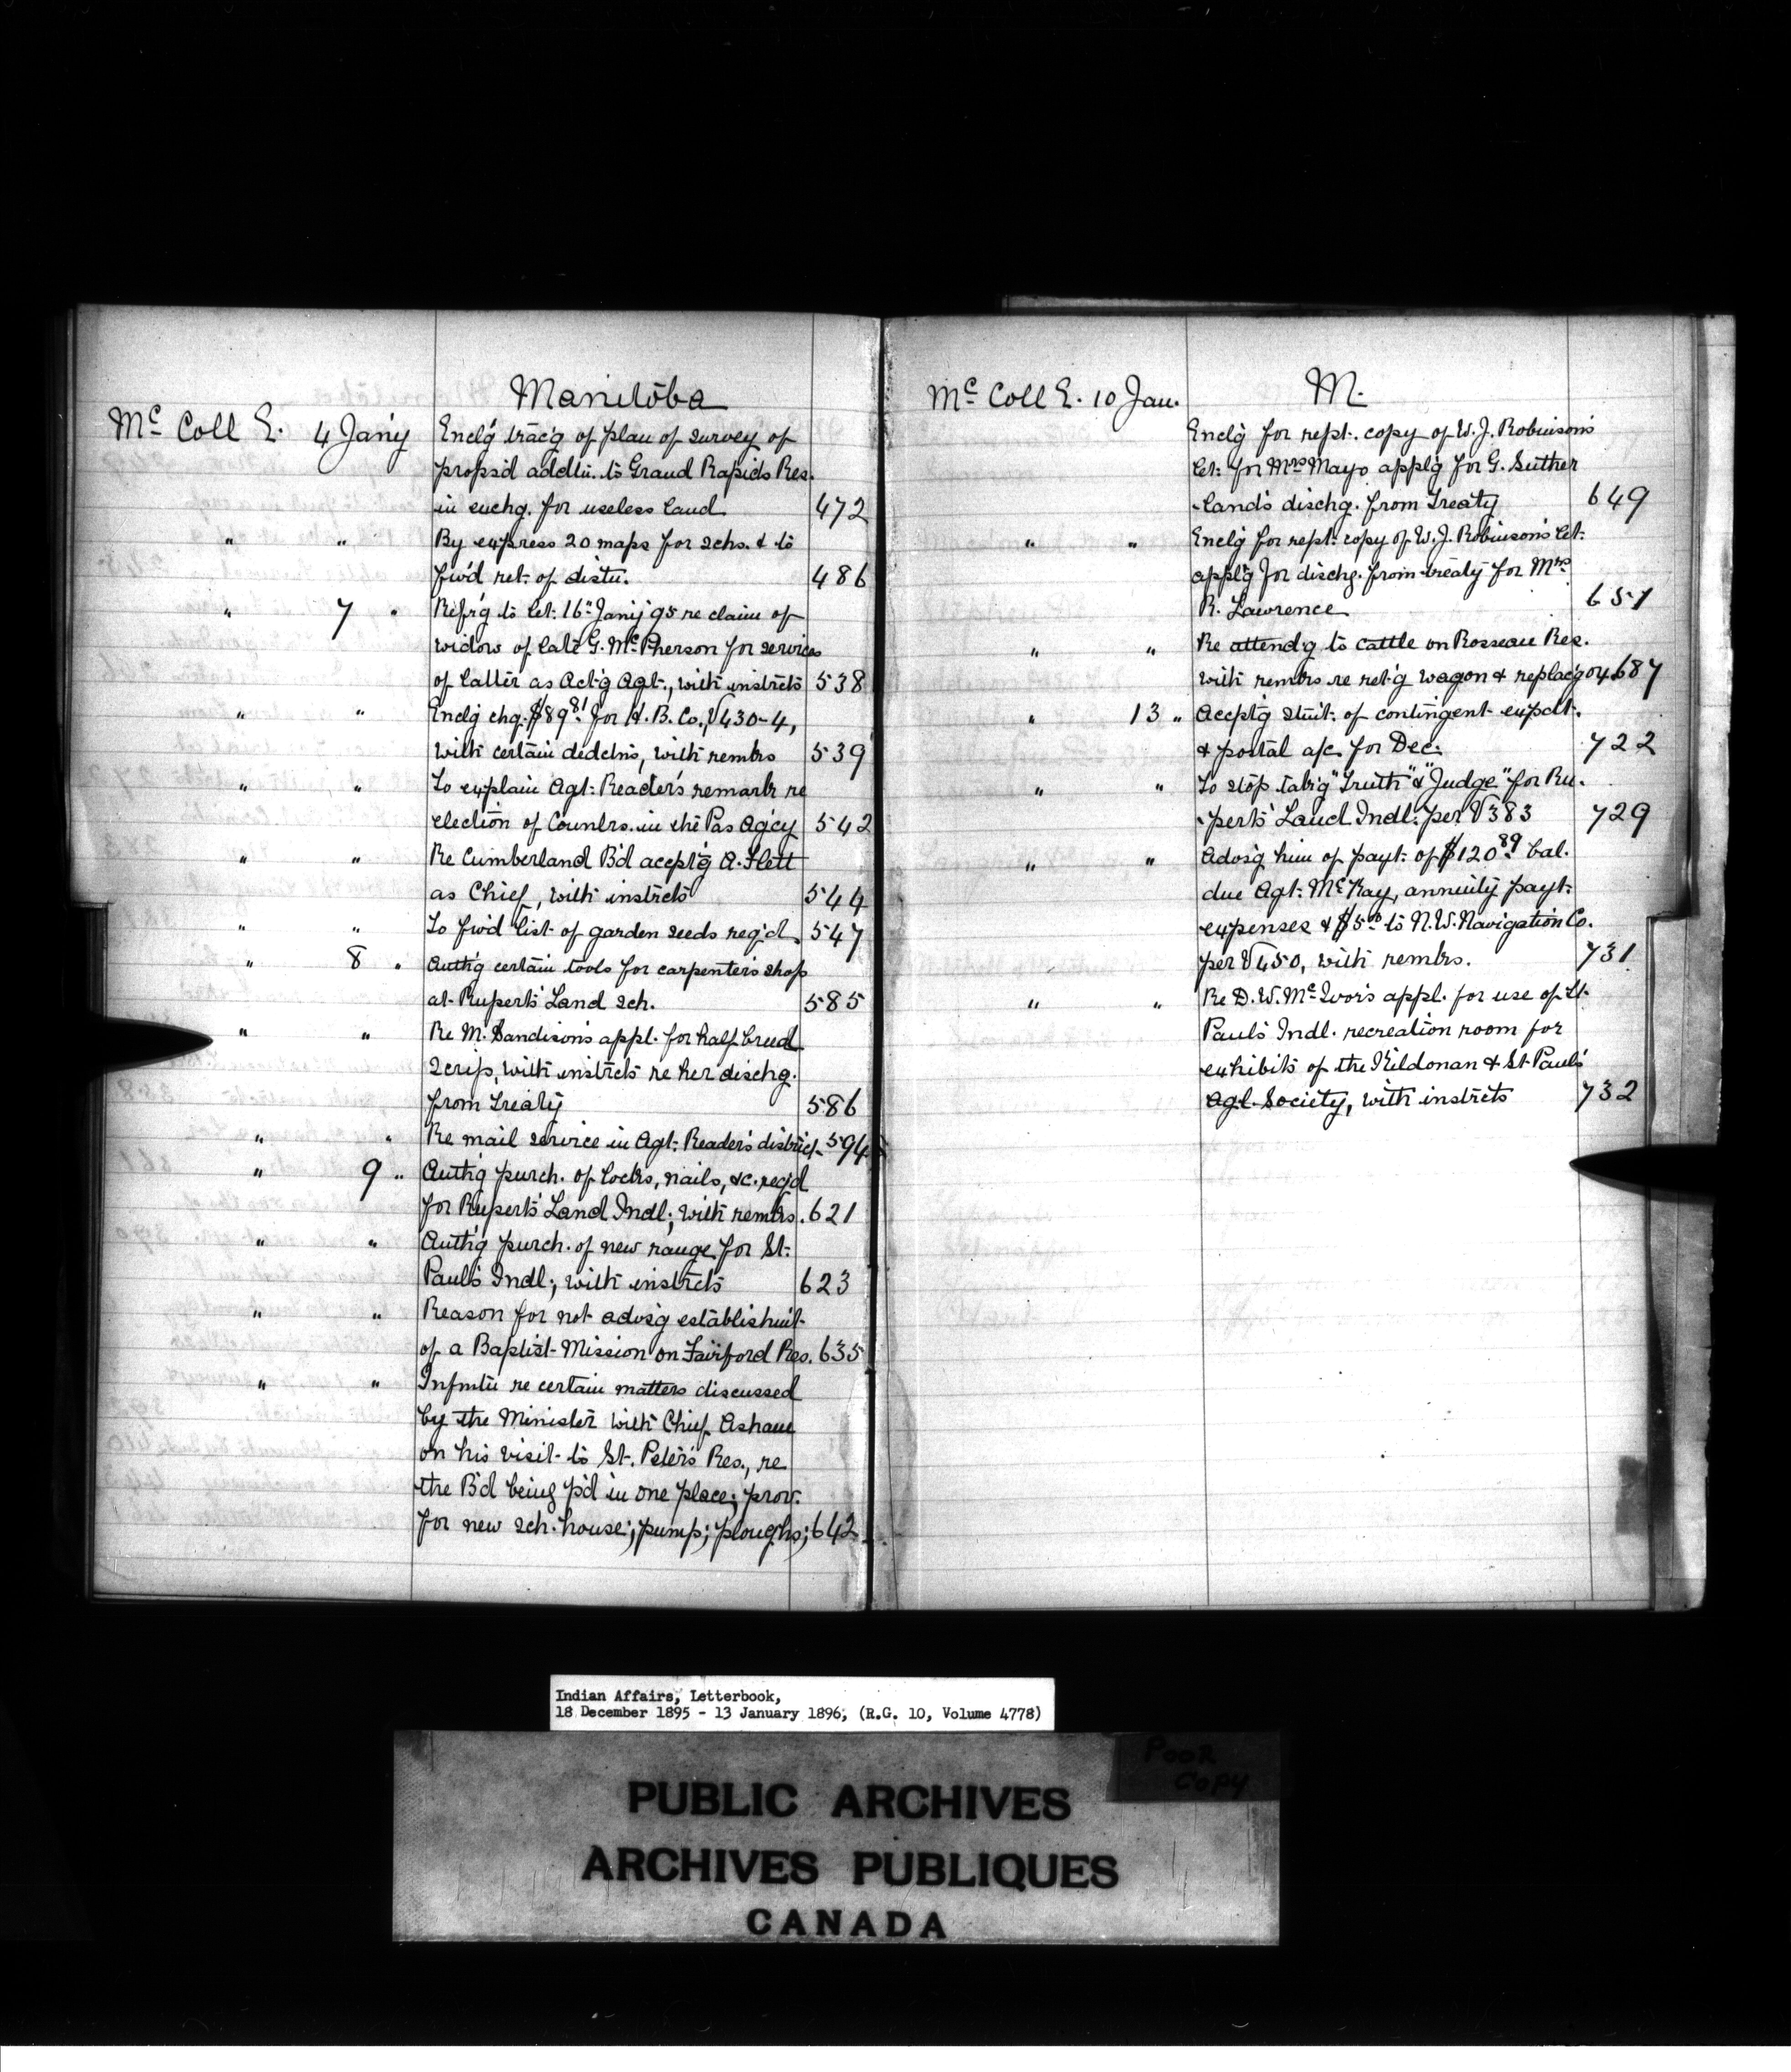 Manitoba
McColl E. 4 Jan'y Encl'g trac'g of plan of survey of
props'd addtn. to Grand Rapids Res.
in exchg. for useless land 472
" " By express 20 maps for schs. & to
fw'd ret. of distn. 486
" 7 " Refr'g to let. 16" Jan'y 95 re claim of
widow of late G. McPherson for services
of latter as Act'g Agt., with instrcts 538
" " Encl'g chq. $89.81 for H. B. Co., V 430-4,
with certain dedctns, with remks 539
" " To explain Agt. Reader's remark re
election of Counlrs. in the Pas Ag'cy 542
" " Re Cumberland B'd accept'g A. Flett
as Chief, with instrcts 544
" " To fw'd list of garden seeds req'd. 547
" 8 " Auth'g certain tools for carpenter's shop
at Rupert's Land sch. 585
" " Re M. Sandison's appl. for half breed
scrip, with instrcts re her dischg.
from treaty 586
" " Re mail service in Agt. Reader's district 594
" 9 " Auth'g purch. of locks, nails, &c. req'd
for Rupert's Land Indl.; with remks. 621
" " Auth'g purch. of new range for St.
Paul's Indl.; with instrcts 623
" " Reason for not advis'g establishmt
of a Baptist Mission on Fairford Res. 635
" " Infmtn re certain matters discussed
by the Minister with Chief Asham
on his visit to St. Peter's Res., re
the B'd being p'd in one place; prov.
for new sch. house; pump; ploughs; 642
M.
McColl E. 10 Jan.
Encl'g for rept. copy of W. J. Robinson's
let. for Mrs Mayo appl'g for G. Suther
-land's dischg. from Treaty 649
" " Encl'g for rept. copy of W. J. Robinson's let.
appl'g for dischg. from treaty for Mrs
R. Lawrence 651
" " Re attend'g to cattle on Rosseau Res.
with remks re ret'g wagon & replac'g ox 687
" 13 " Accept'g stmt. of contingent expdt.
& postal a/c for Dec. 722
" " To stop tak'g "Truth" & "Judge" for Ru-
-pert's Land Indl. per V 383 729
" " Advis'g him of payt. of $120.89 bal.
due Agt. McKay, annuity payt.
expenses & $5.00 to N.W. Navigation Co.
per V 450, with remks. 731
" " Re D. W. McIvor's appl. for use of St.
Paul's Indl. recreation room for
exhibits of the Kildonan & St. Paul's
Agl. Society, with instrcts 732
Indian Affairs, Letterbook,
18 December 1895 - 13 January 1896, (R.G. 10, Volume 4778)
POOR
COPY
PUBLIC ARCHIVES
ARCHIVES PUBLIQUES
CANADA